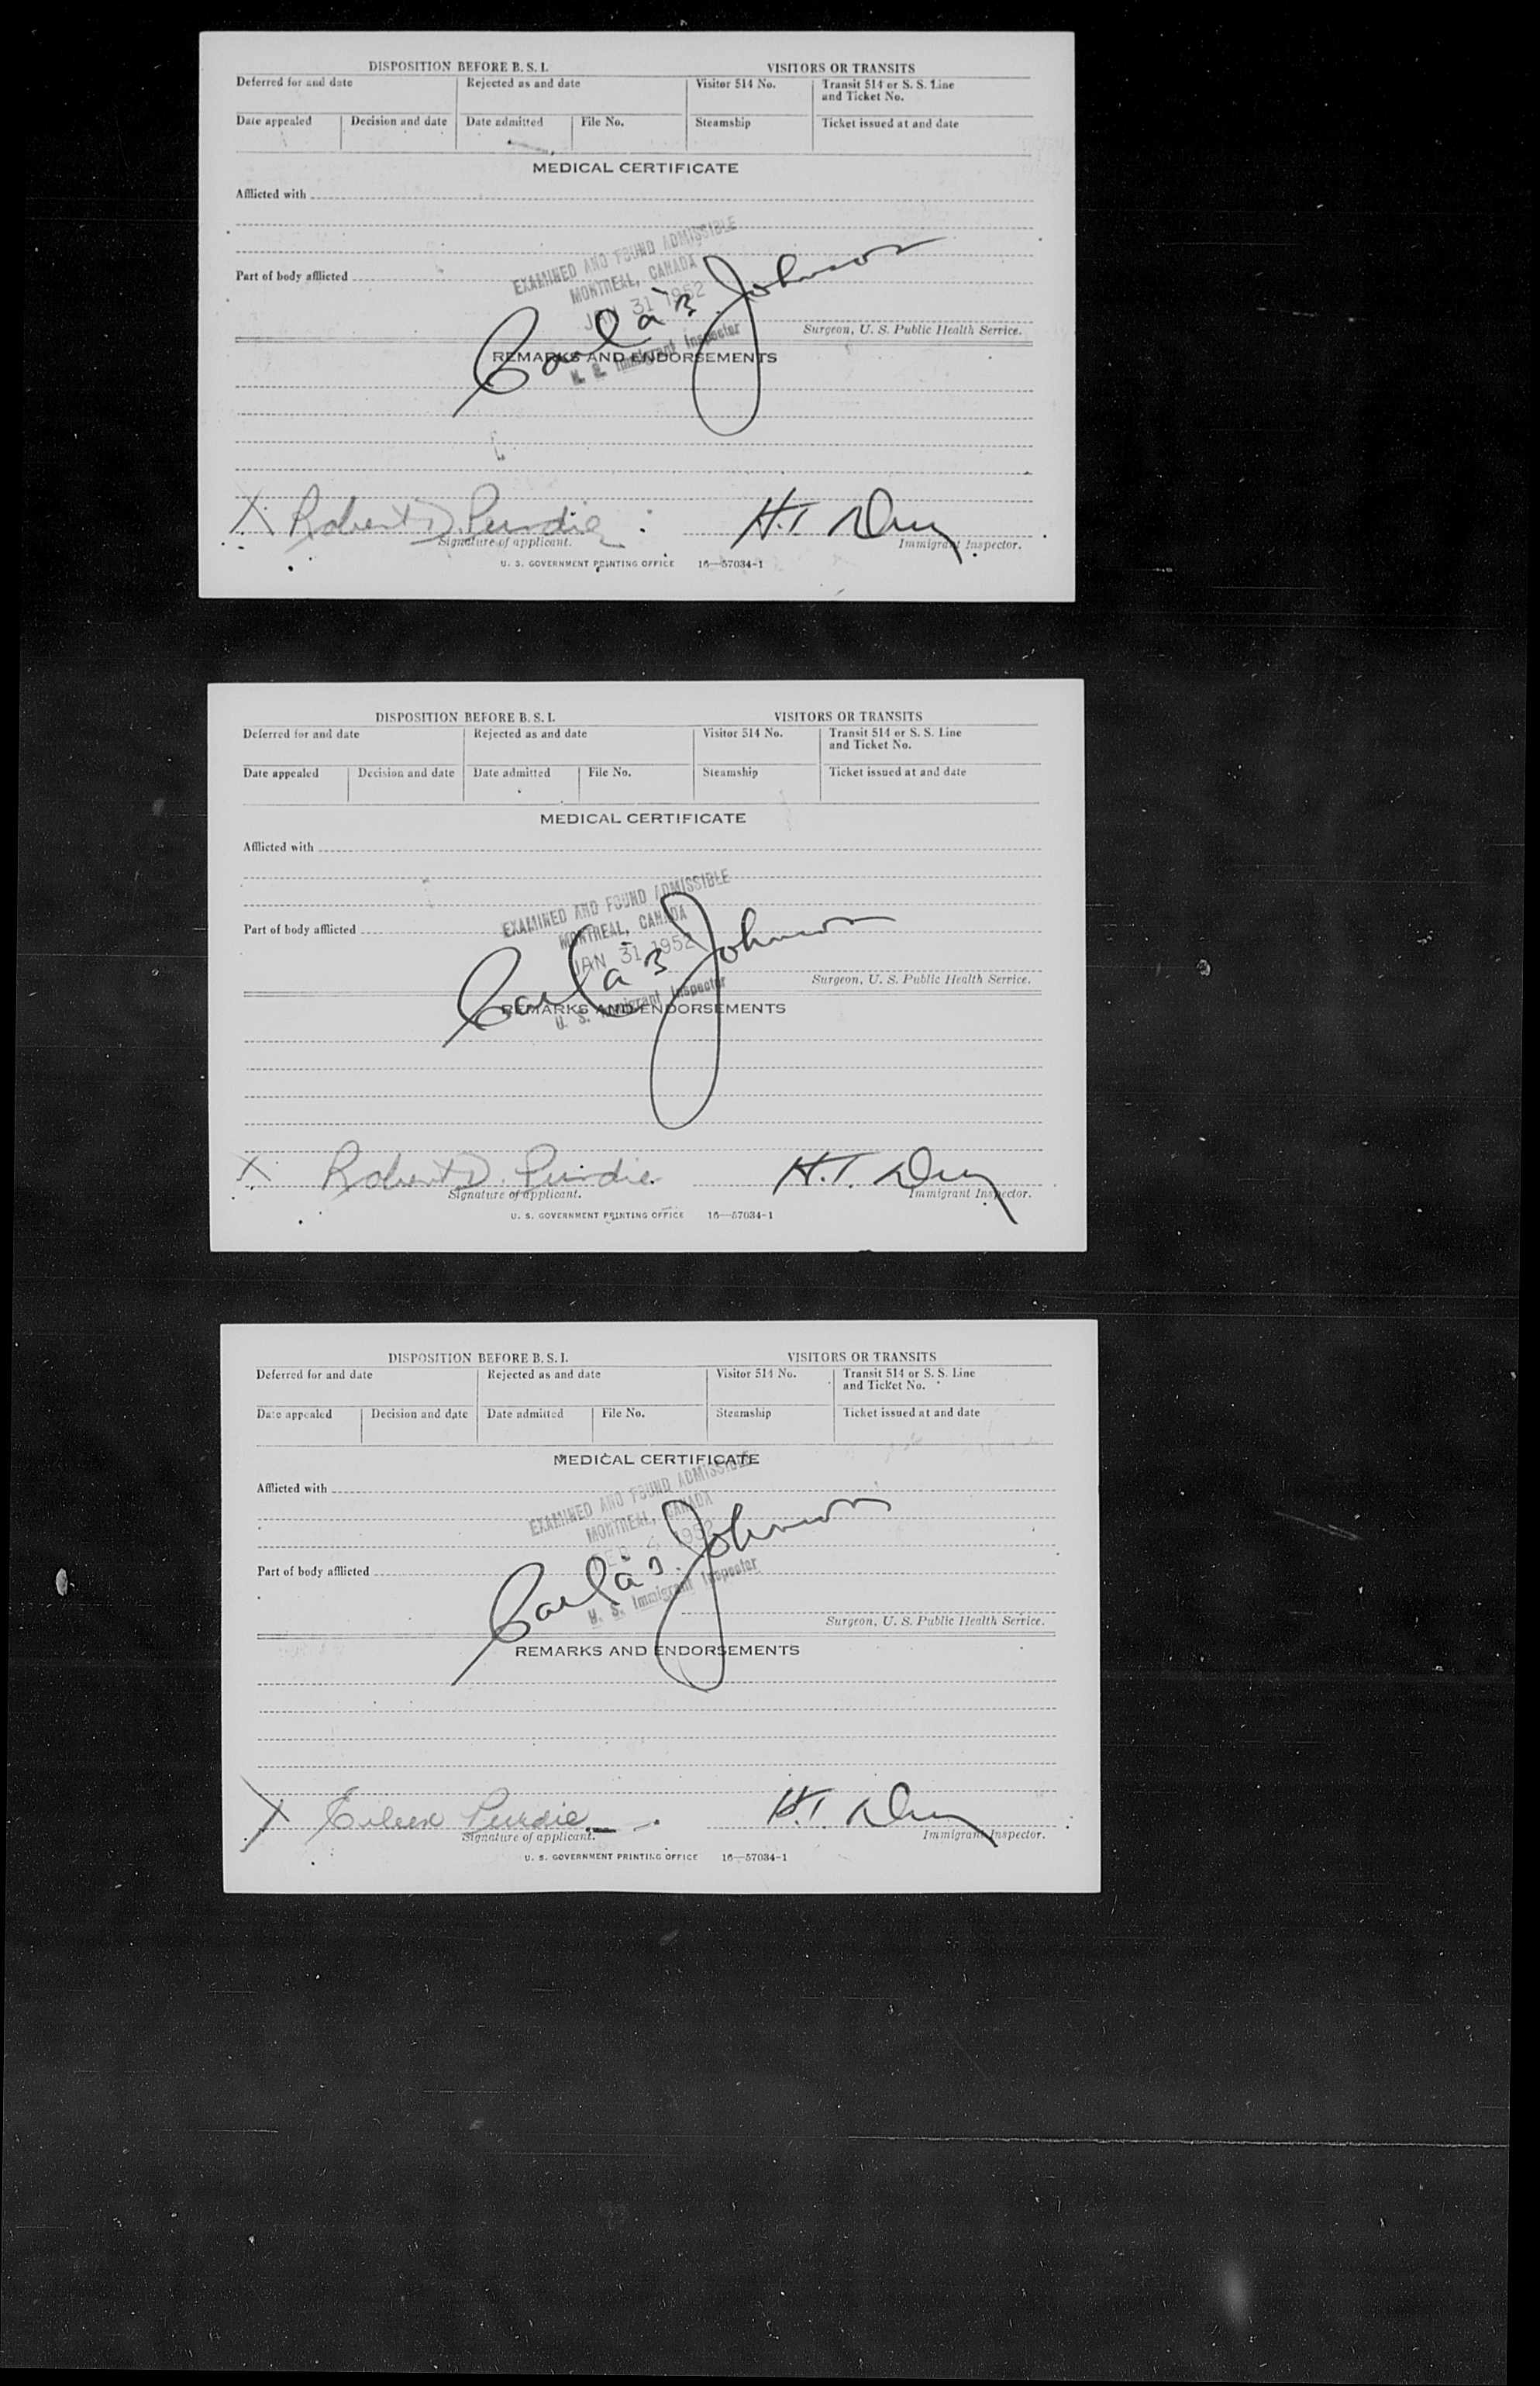 DISPOSITION BEFORE B. S. I. VISITORS OR TRANSITS
Deferred for and date Rejected as and date Visitor 514 No. Transit 514 or S. S. Line and Ticket No.
Date appealed Decision and date Date admitted File No. Steamship Ticket issued at and date
MEDICAL CERTIFICATE
Afflicted with
EXAMINED AND FOUND ADMISSIBLE
MONTREAL, CANADA
Part of body afflicted
JAN 31 1952
Johnson
U. S. Immigrant Inspector
Surgeon, U. S. Public Health Service.
REMARKS AND ENDORSEMENTS
X Robert D. Purdie H.T.
Signature of applicant. Immigrant Inspector.
U. S. GOVERNMENT PRINTING OFFICE 16—57034-1
DISPOSITION BEFORE B. S. I. VISITORS OR TRANSITS
Deferred for and date Rejected as and date Visitor 514 No. Transit 514 or S. S. Line and Ticket No.
Date appealed Decision and date Date admitted File No. Steamship Ticket issued at and date
MEDICAL CERTIFICATE
Afflicted with
EXAMINED AND FOUND ADMISSIBLE
MONTREAL, CANADA
Part of body afflicted
JAN 31 1952
Johnson
U. S. Immigrant Inspector
Surgeon, U. S. Public Health Service.
REMARKS AND ENDORSEMENTS
X Robert D. Purdie H.T.
Signature of applicant. Immigrant Inspector.
U. S. GOVERNMENT PRINTING OFFICE 16—57034-1
DISPOSITION BEFORE B. S. I. VISITORS OR TRANSITS
Deferred for and date Rejected as and date Visitor 514 No. Transit 514 or S. S. Line and Ticket No.
Date appealed Decision and date Date admitted File No. Steamship Ticket issued at and date
MEDICAL CERTIFICATE
Afflicted with
EXAMINED AND FOUND ADMISSIBLE
MONTREAL, CANADA
FEB 1952
Part of body afflicted
Johnson
U. S. Immigrant Inspector
Surgeon, U. S. Public Health Service.
REMARKS AND ENDORSEMENTS
X Eileen Purdie H.T.
Signature of applicant. Immigrant Inspector.
U. S. GOVERNMENT PRINTING OFFICE 16—57034-1